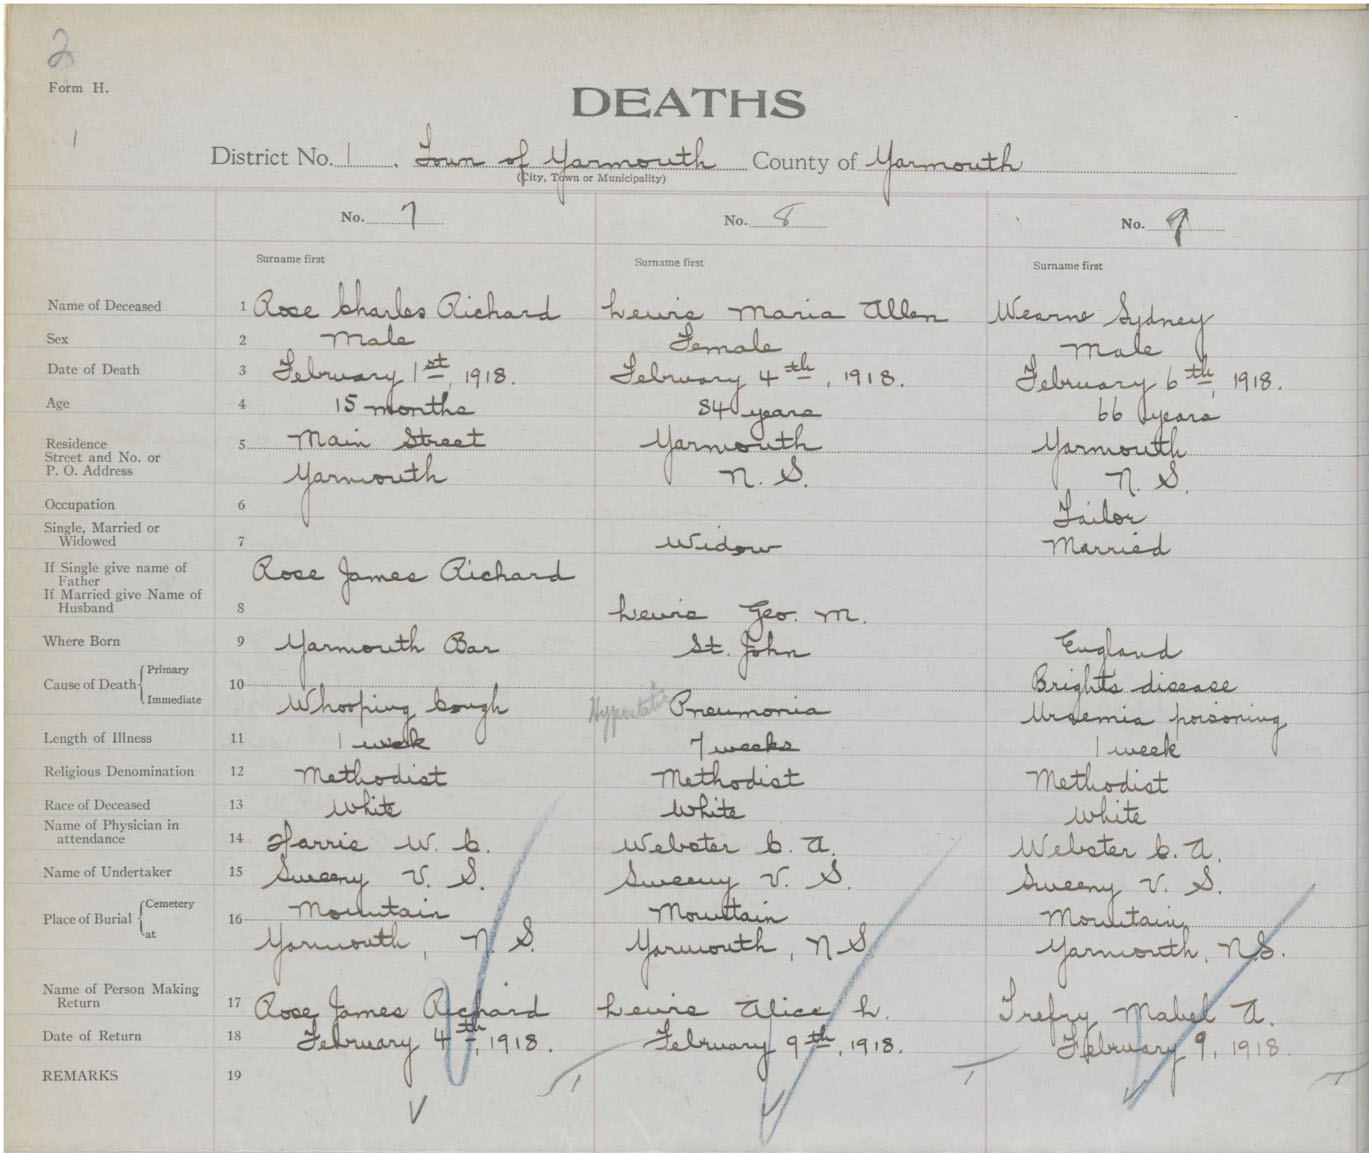 2
Form H.
1
DEATHS
District No. 1 . Town of Yarmouth County of Yarmouth
(City, Town or Municipality)
No. 7 No. 8 No. 9
Surname first Surname first Surname first
Name of Deceased 1 Rose Charles Richard Lewis Maria Allen Wearne Sydney
Sex 2 Male Female Male
Date of Death 3 February 1st, 1918. February 4th, 1918. February 6th, 1918.
Age 4 15 months 84 years 66 years
Residence 5 Main Street Yarmouth Yarmouth
Street and No. or
P. O. Address Yarmouth N. S. N. S.
Occupation 6 Tailor
Single, Married or
Widowed 7 Widow Married
If Single give name of
Father Rose James Richard
If Married give Name of
Husband 8 Lewis Geo. M.
Where Born 9 Yarmouth Bar St. John England
Cause of Death { Primary 10 Brights disease
Immediate Whooping Cough Hypostatic Pneumonia Uraemia poisoning
Length of Illness 11 1 week 7 weeks 1 week
Religious Denomination 12 Methodist Methodist Methodist
Race of Deceased 13 White White White
Name of Physician in
attendance 14 Harris W. C. Webster C. A. Webster C. A.
Name of Undertaker 15 Sweeny V. S. Sweeny V. S. Sweeny V. S.
Place of Burial { Cemetery 16 Mountain Mountain Mountain
at Yarmouth, N. S. Yarmouth, N S. Yarmouth, N.S.
Name of Person Making
Return 17 Rose James Richard Lewis Alice L. Trefry Mabel A.
Date of Return 18 February 4th, 1918. February 9th, 1918. February 9, 1918.
REMARKS 19